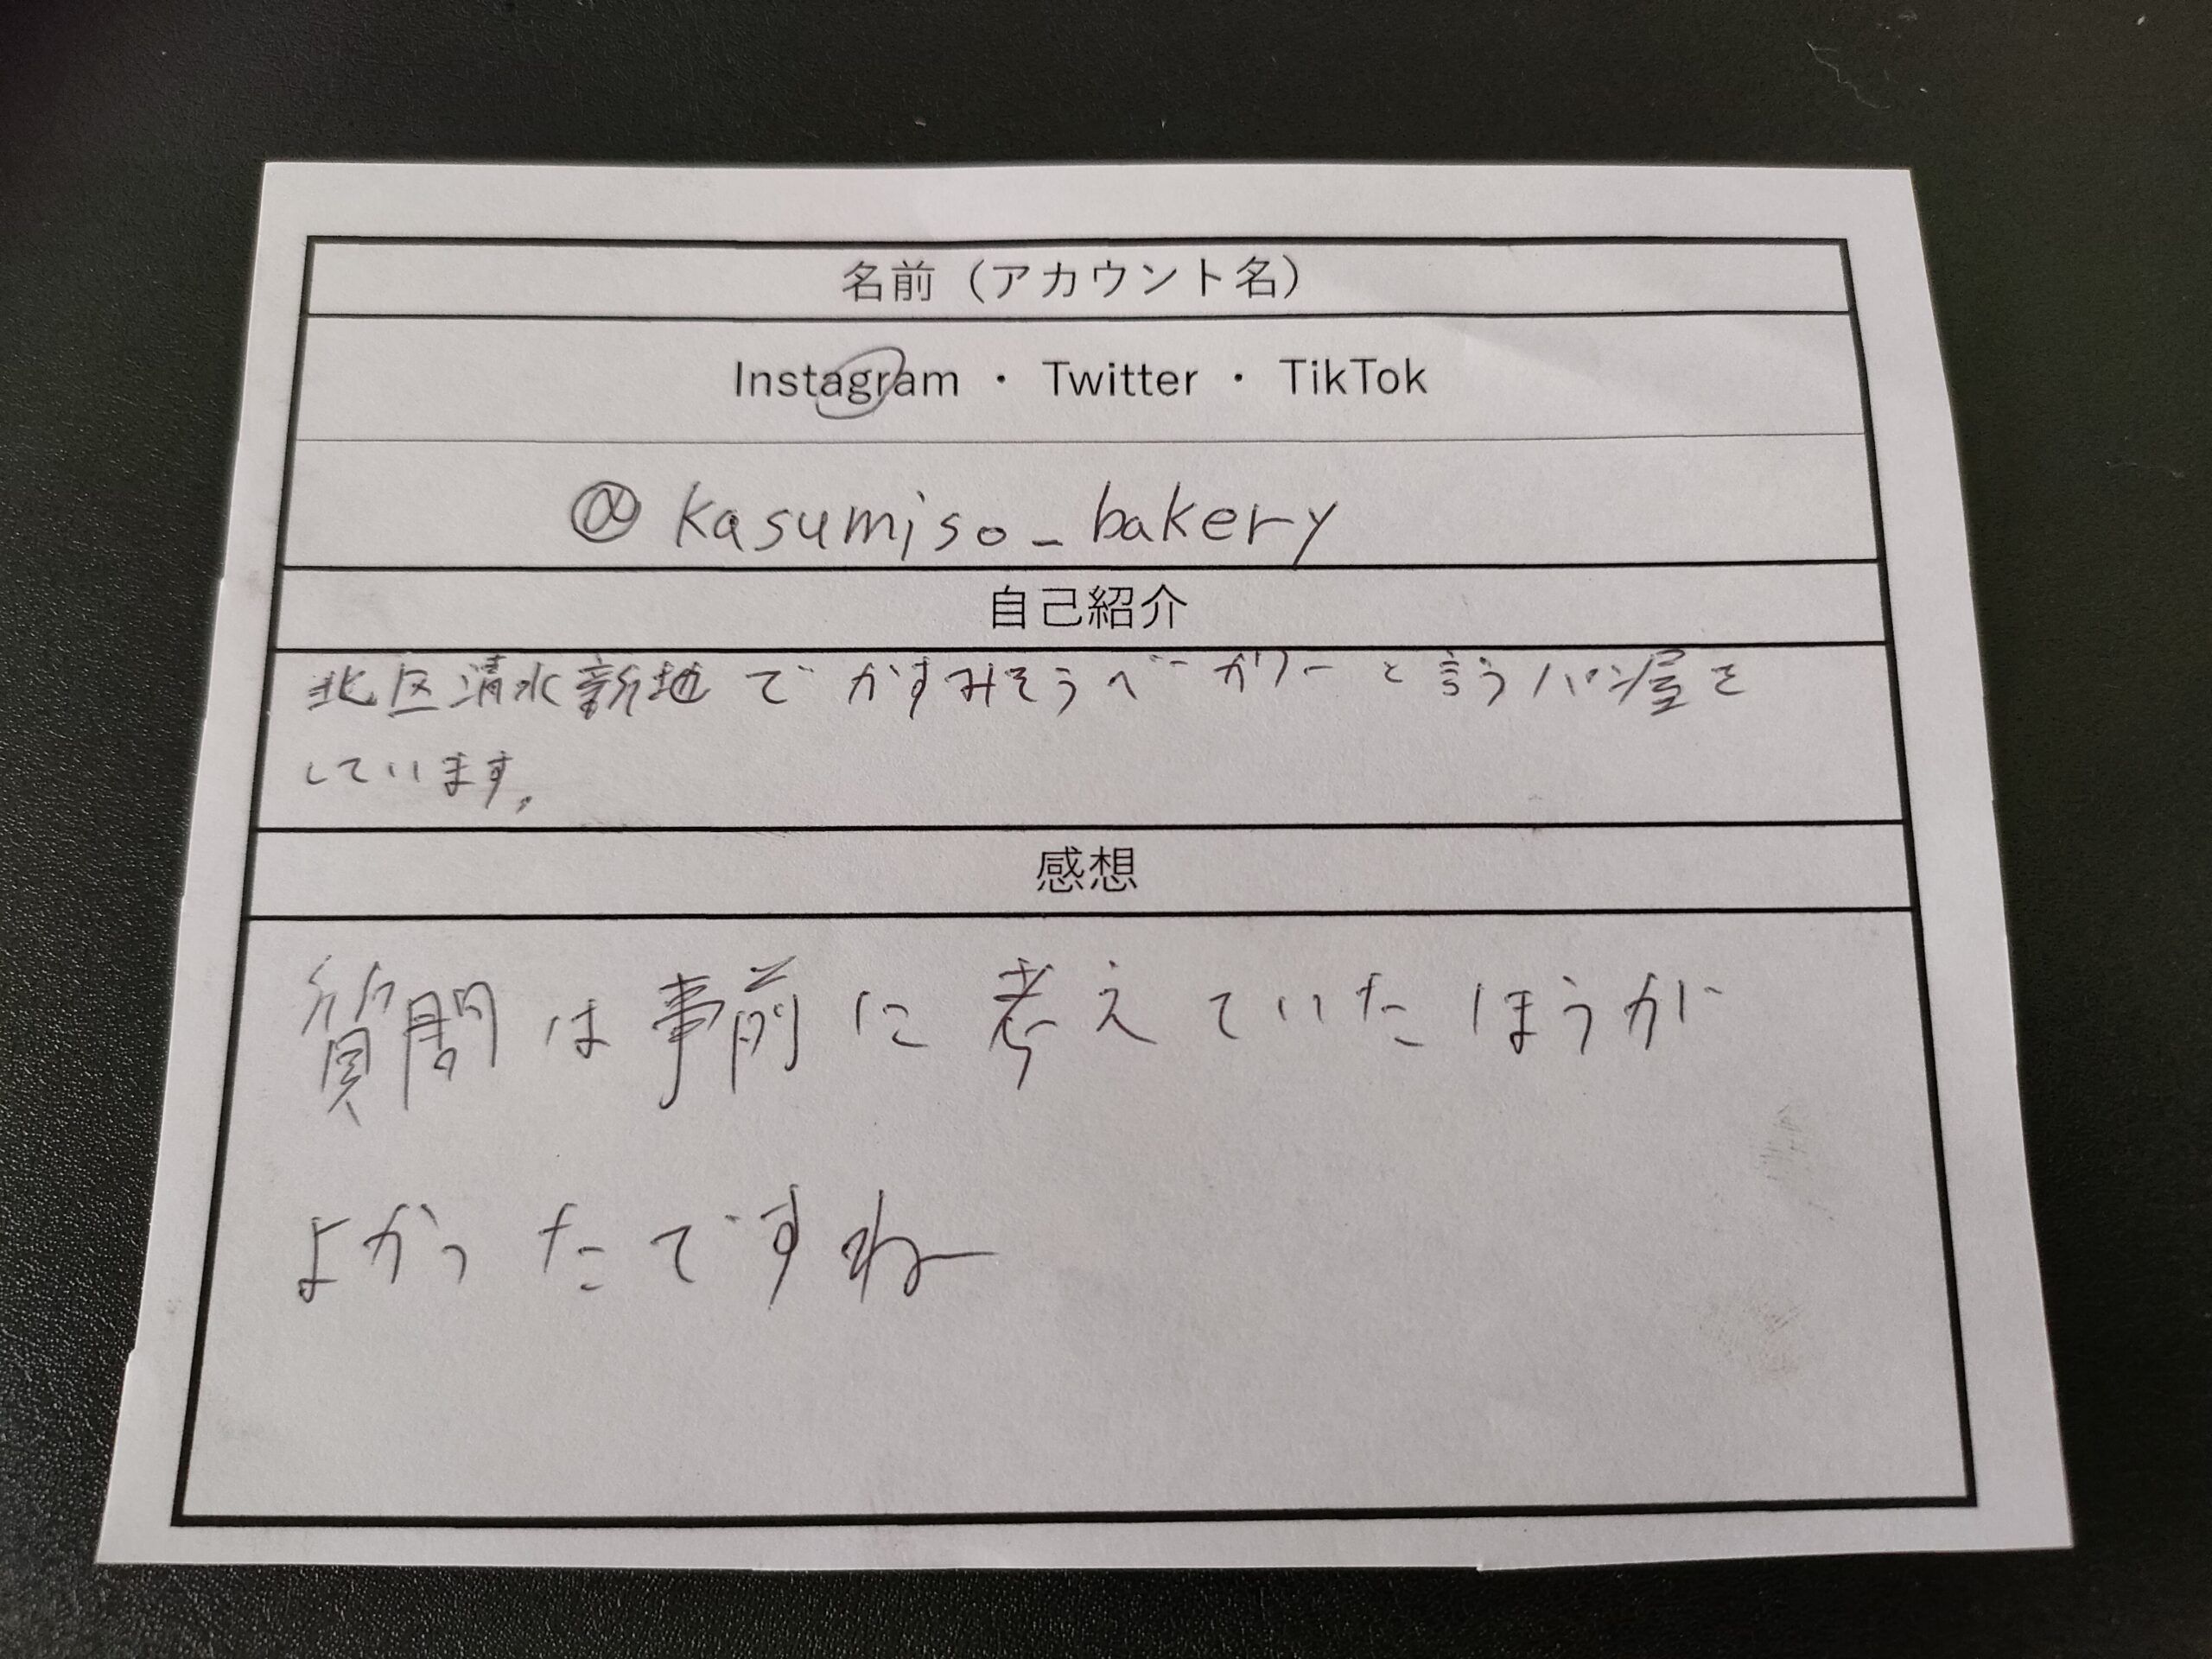 名前（アカウント名）
Instagram ・ Twitter ・ TikTok
@ kasumiso_bakery
自己紹介
北区清水新地でかすみそうベーカリーと言うパン屋を
しています。
感想
質問は事前に考えていたほうが
よかったですね